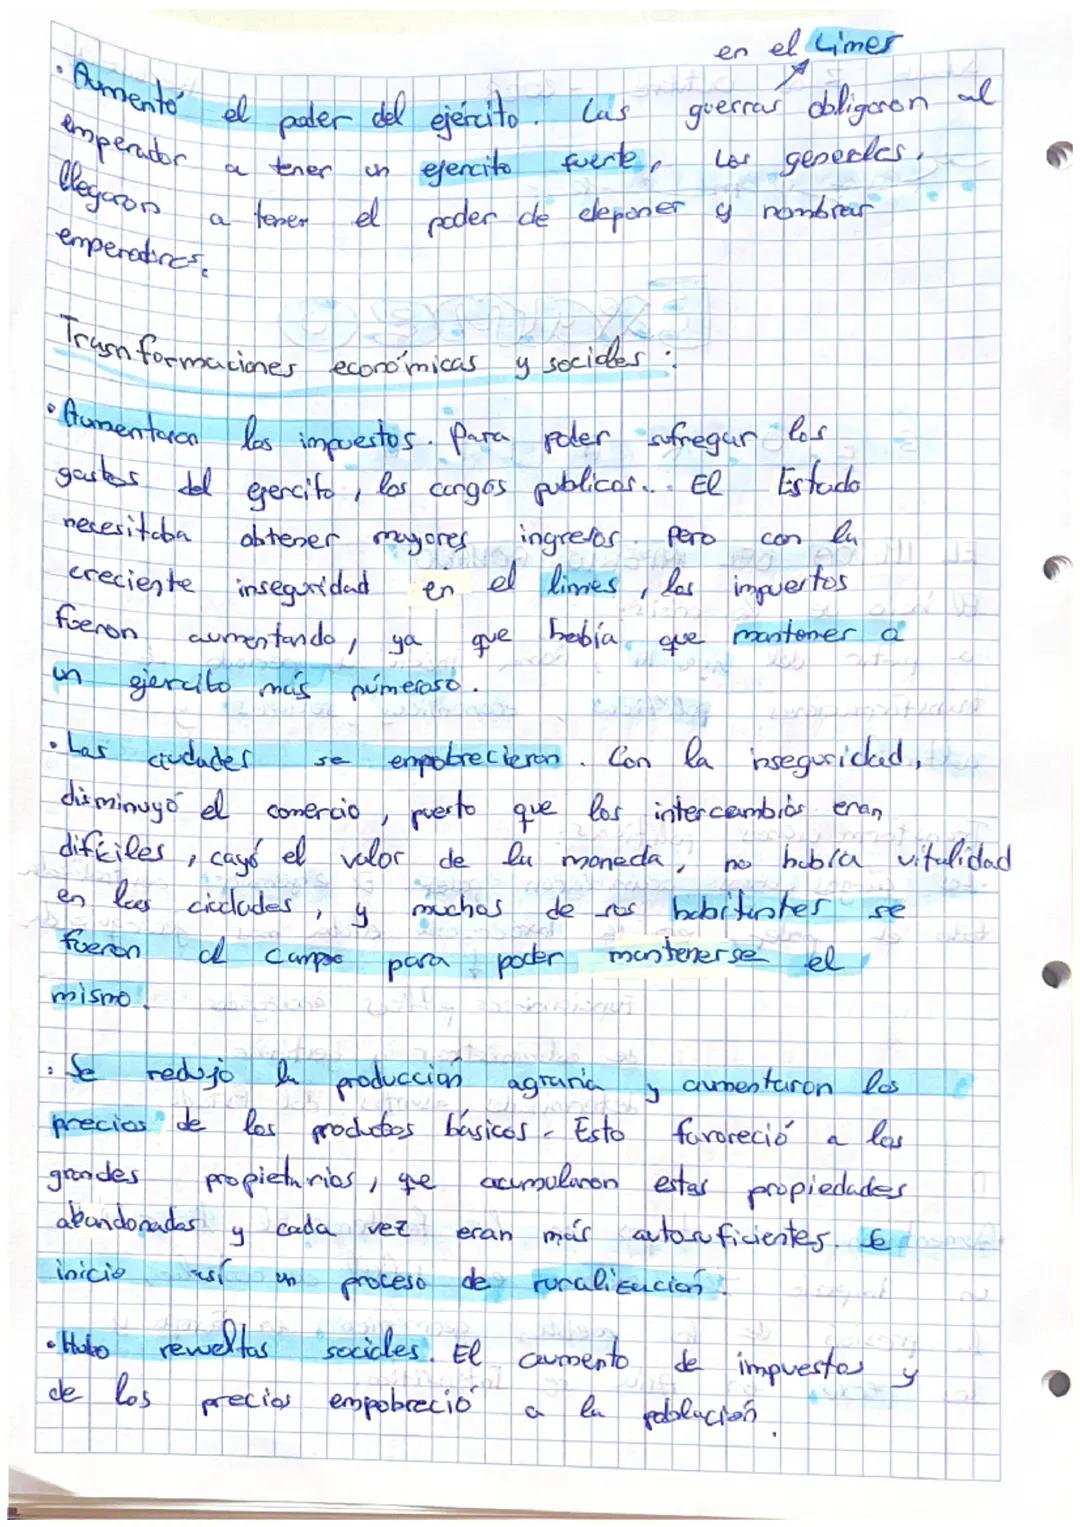 en el Limes
• Aumentó el poder del ejército. Las guerras obligaron al
emperador a tener un ejercito fuerte, Los generales,
llegaron a tener el poder de deponer y nombrar
emperadores.
Trasnformaciones económicas y sociales :
• Aumentaron los impuestos. Para poder sufregar los
gastos del ejercito, los cargos publicos... El Estado
necesitaba obtener mayores ingresos. Pero con la
creciente inseguridad en el limes, los impuestos
fueron aumentando, ya que había que mantener a
un ejercito más númeroso.
• Las ciudades se empobrecieron. Con la inseguridad,
disminuyó el comercio, puesto que los intercambios eran
difíciles, cayó el valor de la moneda, no había vitalidad
en las ciudades, y muchos de sus habitantes se
fueron al campo para poder mantenerse el
mismo.
• Se redujo la producción agraria y aumentaron los
precios de los productos básicos. Esto favoreció a los
grandes propietarios, que acumularon estas propiedades
abandonadas y cada vez eran más autosuficientes. Se
inicio así un proceso de ruralización.
• Hubo revueltas sociales. El aumento de impuestos y
de los precios empobreció a la población.